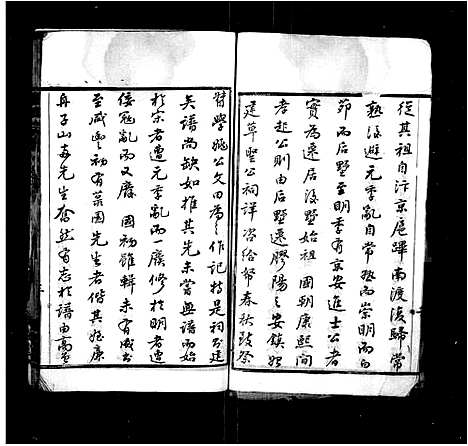 從其祖自汴京扈蹕南渡後歸常
熟後避元季亂自常熟而崇明而白
茆而后墅至明季有京安進士公者
實為遷居后墅始祖 國朝康熙間
孝起公則由后墅遷膠陽之安鎮始
建草聖公祠詳咨給帑春秋致祭
督學姚公文田為之作記於是祠既建
矣譜尚缺如推其先未嘗無譜而始
於宋者遭元季亂而一廢修於明者遭
倭寇亂而又廢 國初雖輯未有成書
至咸豐初有菜園先生者偕其姪康
舟子山壽先生奮然有志於譜由高曾